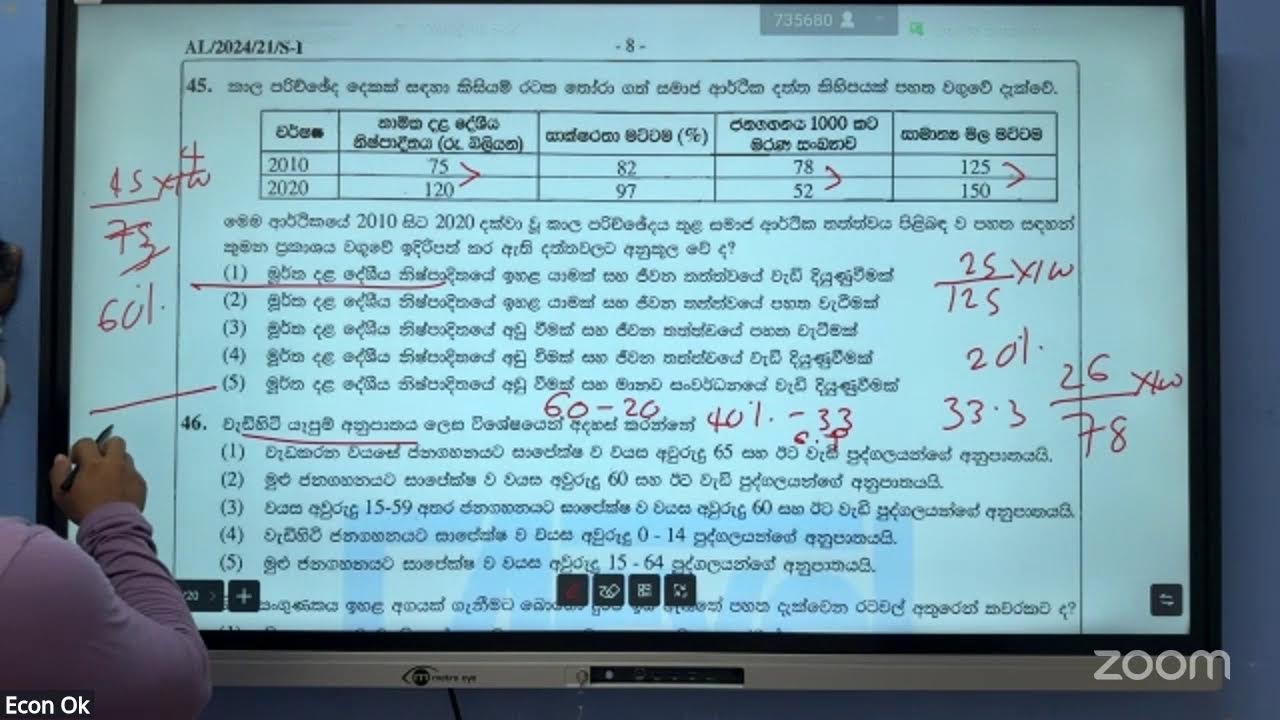 735680
AL/2024/21/S-I
- 8 -
45. කාල පරිච්ඡේද දෙකක් සඳහා කිසියම් රටක තෝරා ගත් සමාජ ආර්ථික දත්ත කිහිපයක් පහත වගුවේ දැක්වේ.
වර්ෂය නාමික දළ දේශීය නිෂ්පාදිතය (රු. බිලියන) සාක්ෂරතා මට්ටම (%) ජනගහනය 1000 කට මරණ සංඛ්‍යාව සාමාන්‍ය මිල මට්ටම
2010 75 82 78 125
2020 120 97 52 150
මෙම ආර්ථිකයේ 2010 සිට 2020 දක්වා වූ කාල පරිච්ඡේදය තුළ සමාජ ආර්ථික තත්ත්වය පිළිබඳ ව පහත සඳහන්
කුමන ප්‍රකාශය වගුවේ ඉදිරිපත් කර ඇති දත්තවලට අනුකූල වේ ද?
(1) මූර්ත දළ දේශීය නිෂ්පාදිතයේ ඉහළ යාමක් සහ ජීවන තත්ත්වයේ වැඩි දියුණුවීමක්
(2) මූර්ත දළ දේශීය නිෂ්පාදිතයේ ඉහළ යාමක් සහ ජීවන තත්ත්වයේ පහත වැටීමක්
(3) මූර්ත දළ දේශීය නිෂ්පාදිතයේ අඩු වීමක් සහ ජීවන තත්ත්වයේ පහත වැටීමක්
(4) මූර්ත දළ දේශීය නිෂ්පාදිතයේ අඩු වීමක් සහ ජීවන තත්ත්වයේ වැඩි දියුණුවීමක්
(5) මූර්ත දළ දේශීය නිෂ්පාදිතයේ අඩු වීමක් සහ මානව සංවර්ධනයේ වැඩි දියුණුවීමක්
45
75
60%
25
125
20%
26
33.3
78
60-20 40% - 33
46. වැඩිහිටි යැපුම් අනුපාතය ලෙස විශේෂයෙන් අදහස් කරන්නේ
(1) වැඩකරන වයසේ ජනගහනයට සාපේක්ෂ ව වයස අවුරුදු 65 සහ ඊට වැඩි පුද්ගලයන්ගේ අනුපාතයයි.
(2) මුළු ජනගහනයට සාපේක්ෂ ව වයස අවුරුදු 60 සහ ඊට වැඩි පුද්ගලයන්ගේ අනුපාතයයි.
(3) වයස අවුරුදු 15-59 අතර ජනගහනයට සාපේක්ෂ ව වයස අවුරුදු 60 සහ ඊට වැඩි පුද්ගලයන්ගේ අනුපාතයයි.
(4) වැඩිහිටි ජනගහනයට සාපේක්ෂ ව වයස අවුරුදු 0 - 14 පුද්ගලයන්ගේ අනුපාතයයි.
(5) මුළු ජනගහනයට සාපේක්ෂ ව වයස අවුරුදු 15 - 64 පුද්ගලයන්ගේ අනුපාතයයි.
ඉහළ අගයක් ගැනීමට පහත දැක්වෙන රටවල් අතුරෙන් කවරකට ද?
metro eye
zoom
Econ Ok